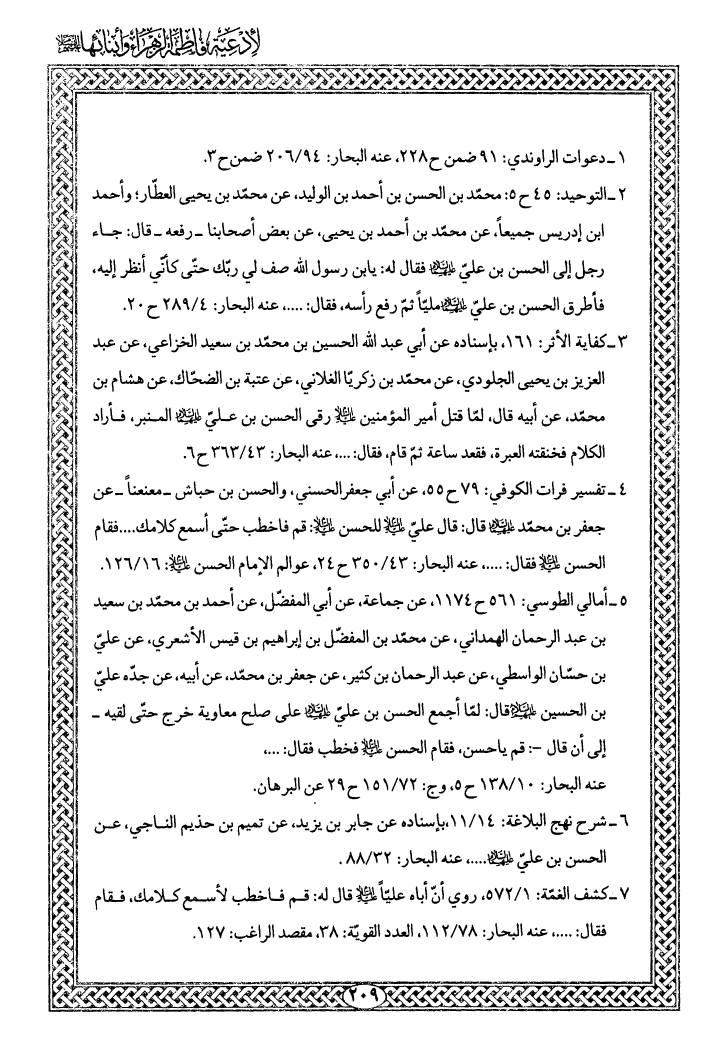 لأدعية فاطمة الزهراء وأبنائها عليهم السلام
١ ـ دعوات الراوندي: ٩١ ضمن ح٢٢٨، عنه البحار: ٢٠٦/٩٤ ضمن ح٣.
٢ ـ التوحيد: ٤٥ ح٥: محمّد بن الحسن بن أحمد بن الوليد، عن محمّد بن يحيى العطّار؛ وأحمد
ابن إدريس جميعاً، عن محمّد بن أحمد بن يحيى، عن بعض أصحابنا ـ رفعه ـ قال: جاء
رجل إلى الحسن بن عليّ عليهما السلام فقال له: يابن رسول الله صف لي ربّك حتّى كأنّي أنظر إليه،
فأطرق الحسن بن عليّ عليهما السلام مليّاً ثمّ رفع رأسه، فقال: ....، عنه البحار: ٢٨٩/٤ ح٢٠.
٣ ـ كفاية الأثر: ١٦١، بإسناده عن أبي عبد الله الحسين بن محمّد بن سعيد الخزاعي، عن عبد
العزيز بن يحيى الجلودي، عن محمّد بن زكريّا الغلاني، عن عتبة بن الضحّاك، عن هشام بن
محمّد، عن أبيه قال، لمّا قتل أمير المؤمنين عليه السلام رقى الحسن بن عليّ عليهما السلام المنبر، فأراد
الكلام فخنقته العبرة، فقعد ساعة ثمّ قام، فقال: ...، عنه البحار: ٣٦٣/٤٣ ح٦.
٤ ـ تفسير فرات الكوفي: ٧٩ ح٥٥، عن أبي جعفر الحسني، والحسن بن حباش ـ معنعناً ـ عن
جعفر بن محمّد عليهما السلام قال: قال عليّ عليه السلام للحسن عليه السلام: قم فاخطب حتّى أسمع كلامك....فقام
الحسن عليه السلام فقال: ....، عنه البحار: ٣٥٠/٤٣ ح٢٤، عوالم الإمام الحسن عليه السلام: ١٢٦/١٦.
٥ ـ أمالي الطوسي: ٥٦١ ح١١٧٤، عن جماعة، عن أبي المفضّل، عن أحمد بن محمّد بن سعيد
بن عبد الرحمان الهمداني، عن محمّد بن المفضّل بن إبراهيم بن قيس الأشعري، عن عليّ
بن حسّان الواسطي، عن عبد الرحمان بن كثير، عن جعفر بن محمّد، عن أبيه، عن جدّه عليّ
بن الحسين عليهما السلام قال: لمّا أجمع الحسن بن عليّ عليهما السلام على صلح معاوية خرج حتّى لقيه ـ
إلى أن قال ـ: قم ياحسن، فقام الحسن عليه السلام فخطب فقال: ...،
عنه البحار: ١٣٨/١٠ ح٥، وج: ١٥١/٧٢ ح٢٩ عن البرهان.
٦ ـ شرح نهج البلاغة: ١١/١٤،بإسناده عن جابر بن يزيد، عن تميم بن حذيم الناجي، عن
الحسن بن عليّ عليهما السلام....، عنه البحار: ٨٨/٣٢ .
٧ ـ كشف الغمّة: ٥٧٢/١، روي أنّ أباه عليّاً عليه السلام قال له: قم فاخطب لأسمع كلامك، فقام
فقال: ....، عنه البحار: ١١٢/٧٨، العدد القويّة: ٣٨، مقصد الراغب: ١٢٧.
٢٠٩